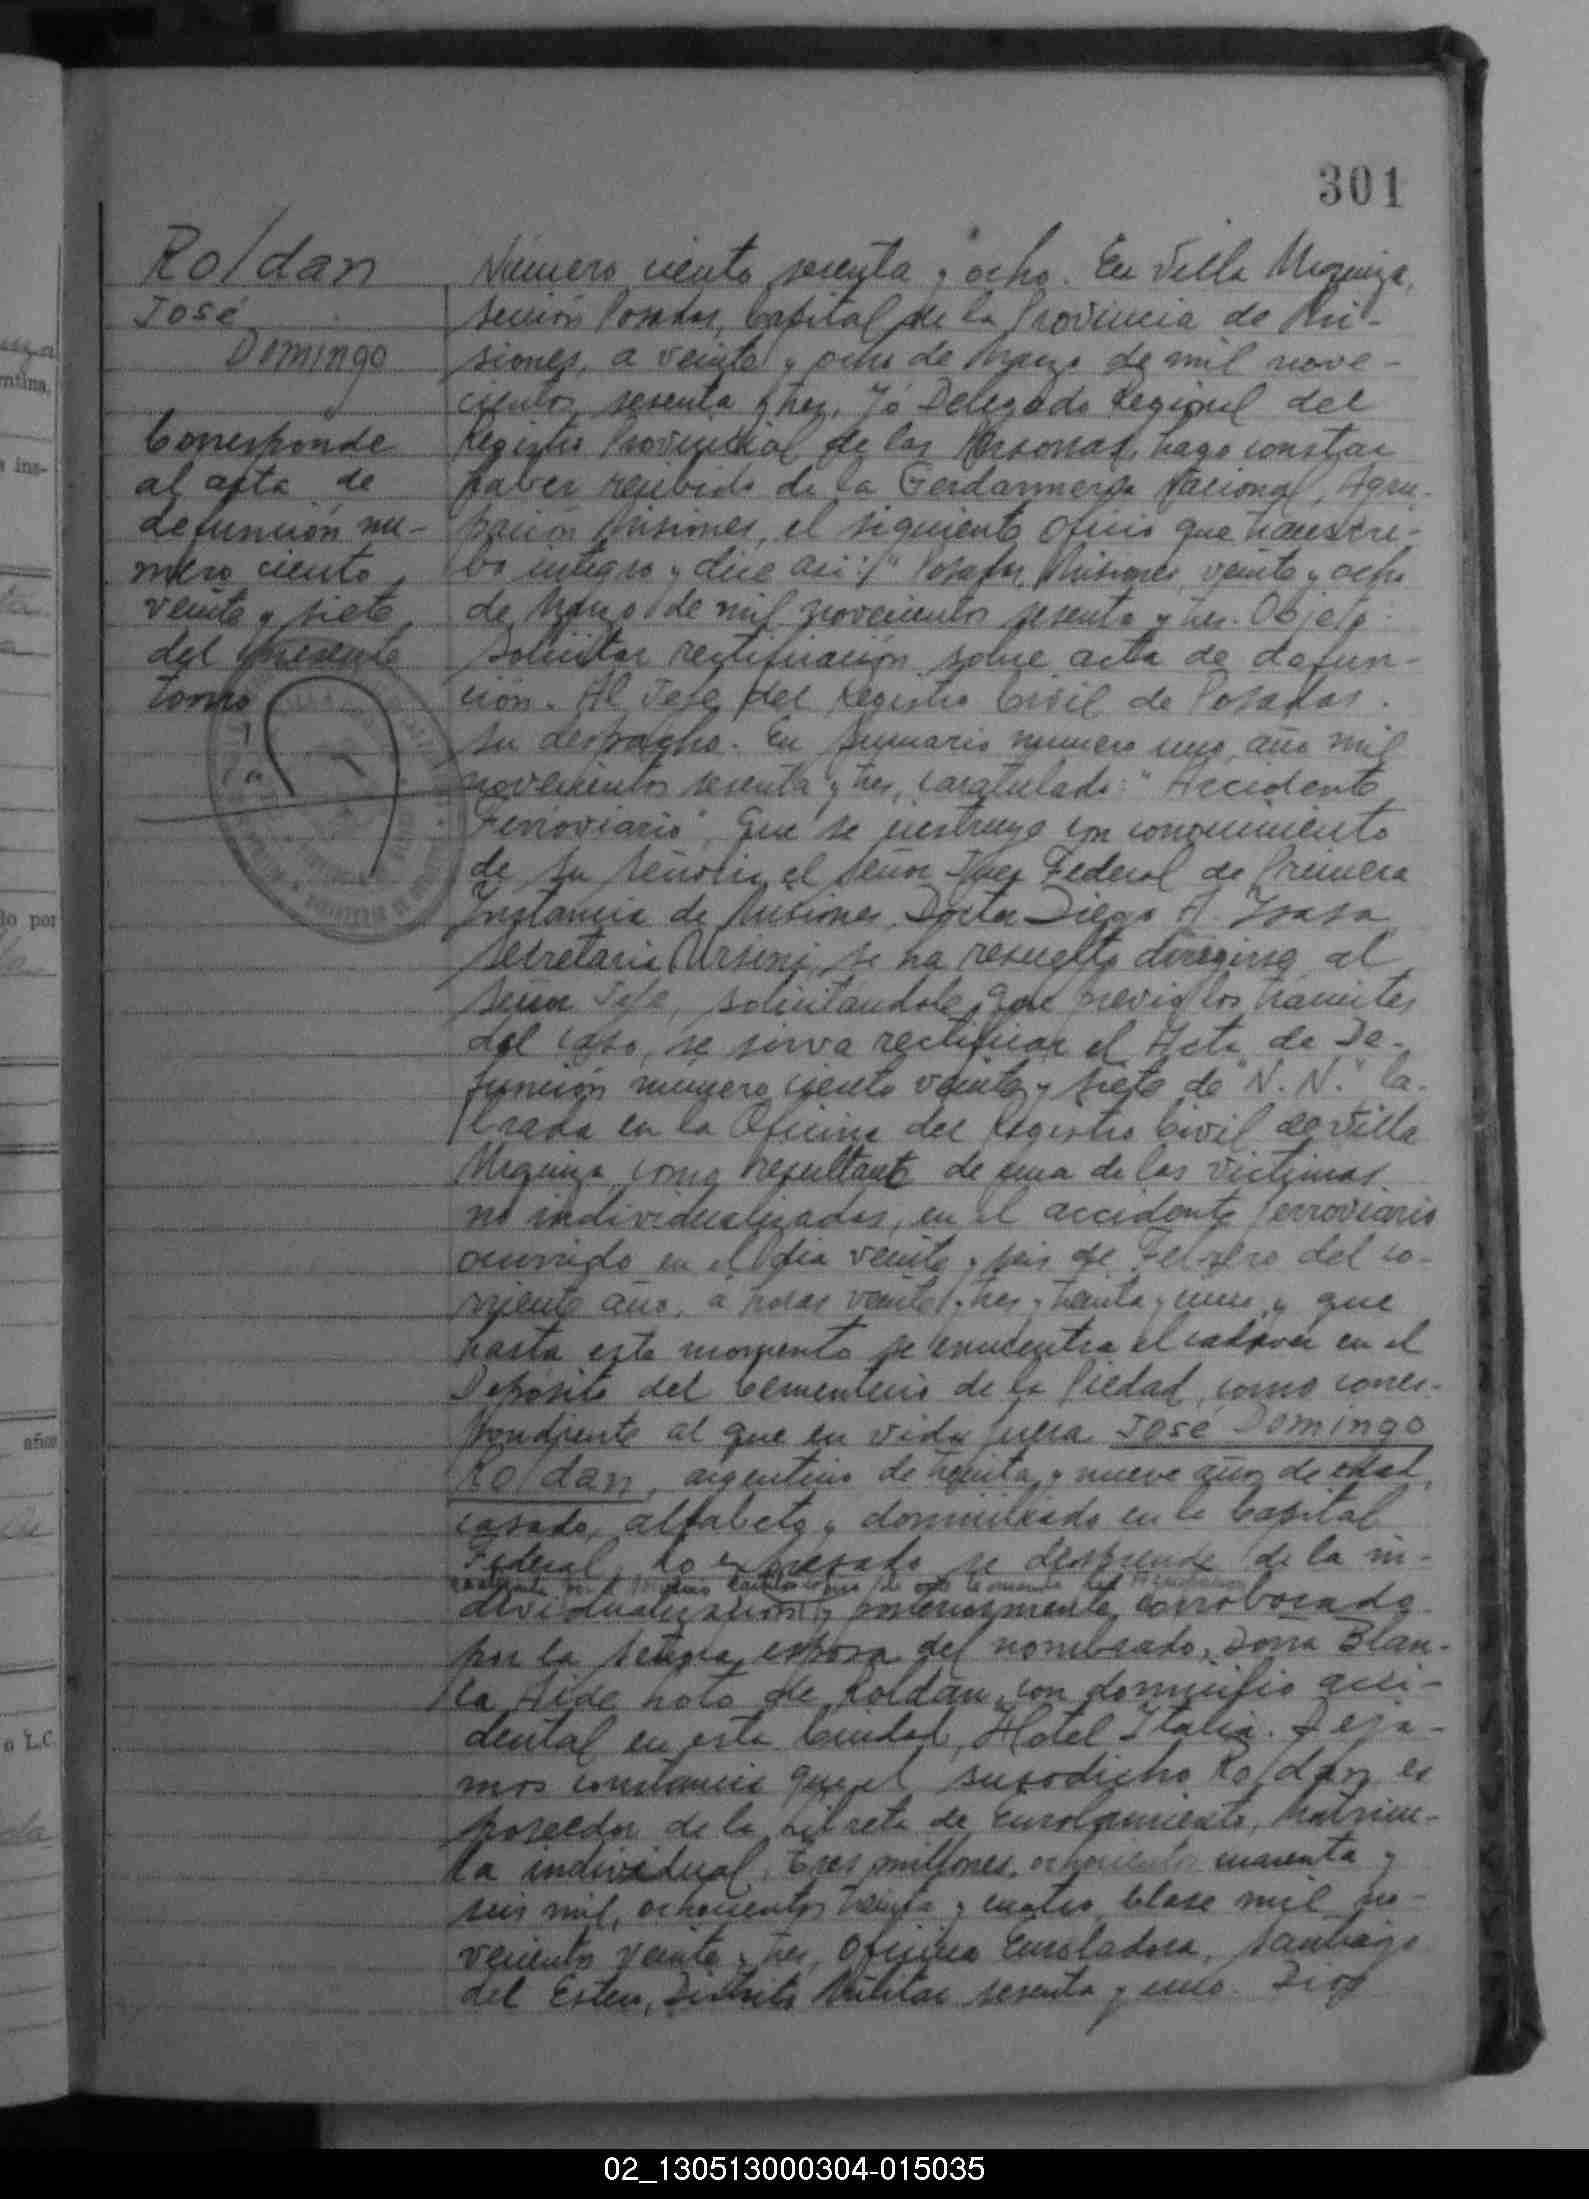 301
Roldan
José
Domingo
Corresponde
al acta de
defunción nú-
mero ciento
veinte y siete
del presente
tomo
Número ciento sesenta y ocho. En Villa Urquiza,
sección Posadas, Capital de la Provincia de Mi-
siones, a veinte y ocho de Marzo de mil nove-
cientos sesenta y tres. Yó Delegado Regional del
Registro Provincial de las Personas, hago constar
haber recibido de la Gerdarmeria Nacional, Agru-
pación Misiones, el siguiente oficio que transcri-
bo integro y dice asi: "Posadas, Misiones, veinte y ocho
de Marzo de mil novecientos sesenta y tres. Objeto:
Solicitar rectificación sobre acta de defun-
ción. Al Jefe del Registro Civil de Posadas.
Su despacho. En sumario numero uno, año mil
novecientos sesenta y tres, caratulado: "Accidente
Ferroviario", que se instruye con conocimiento
de su señoria el señor Juez Federal de Primera
Instancia de Misiones, Doctor Diego A.
Secretaria Ursini, se ha resuelto dirigirse al
señor Jefe, solicitandole, que previo los tramites
del caso, se sirva rectificar el Acta de De-
función número ciento veinte y siete de "N. N." la-
brada en la Oficina del Registro Civil de Villa
Urquiza, como resultante de una de las victimas
no individualizadas, en el accidente ferroviario
ocurrido en el dia veinte y seis de Febrero del co-
rriente año, a horas veinte y tres y treinta y uno, y que
hasta este momento se encuentra el cadaver en el
Deposito del Cementerio de la Piedad, como corres-
pondiente al que en vida fuera José Domingo
Roldan, argentino de treinta y nueve años de edad,
casado, alfabeto y domiciliado en la Capital
Federal, lo expresado se desprende de la in-
dividualización y posteriormente corroborado
por la señora esposa del nombrado, Doña Blan-
ca Aide de Roldan, con domicilio acci-
dental en esta Ciudad, Hotel Italia. Deja-
mos constancia que el susodicho Roldan es
poseedor de la Libreta de Enrolamiento, Matricu-
la individual, tres millones, ochocientos cuarenta y
seis mil, ochocientos treinta y cuatro, clase mil no-
vecientos veinte y tres, Oficina Enroladora, Santiago
del Estero, Distrito Militar sesenta y uno. Dios
años
o L.C.
do por
02_130513000304-015035